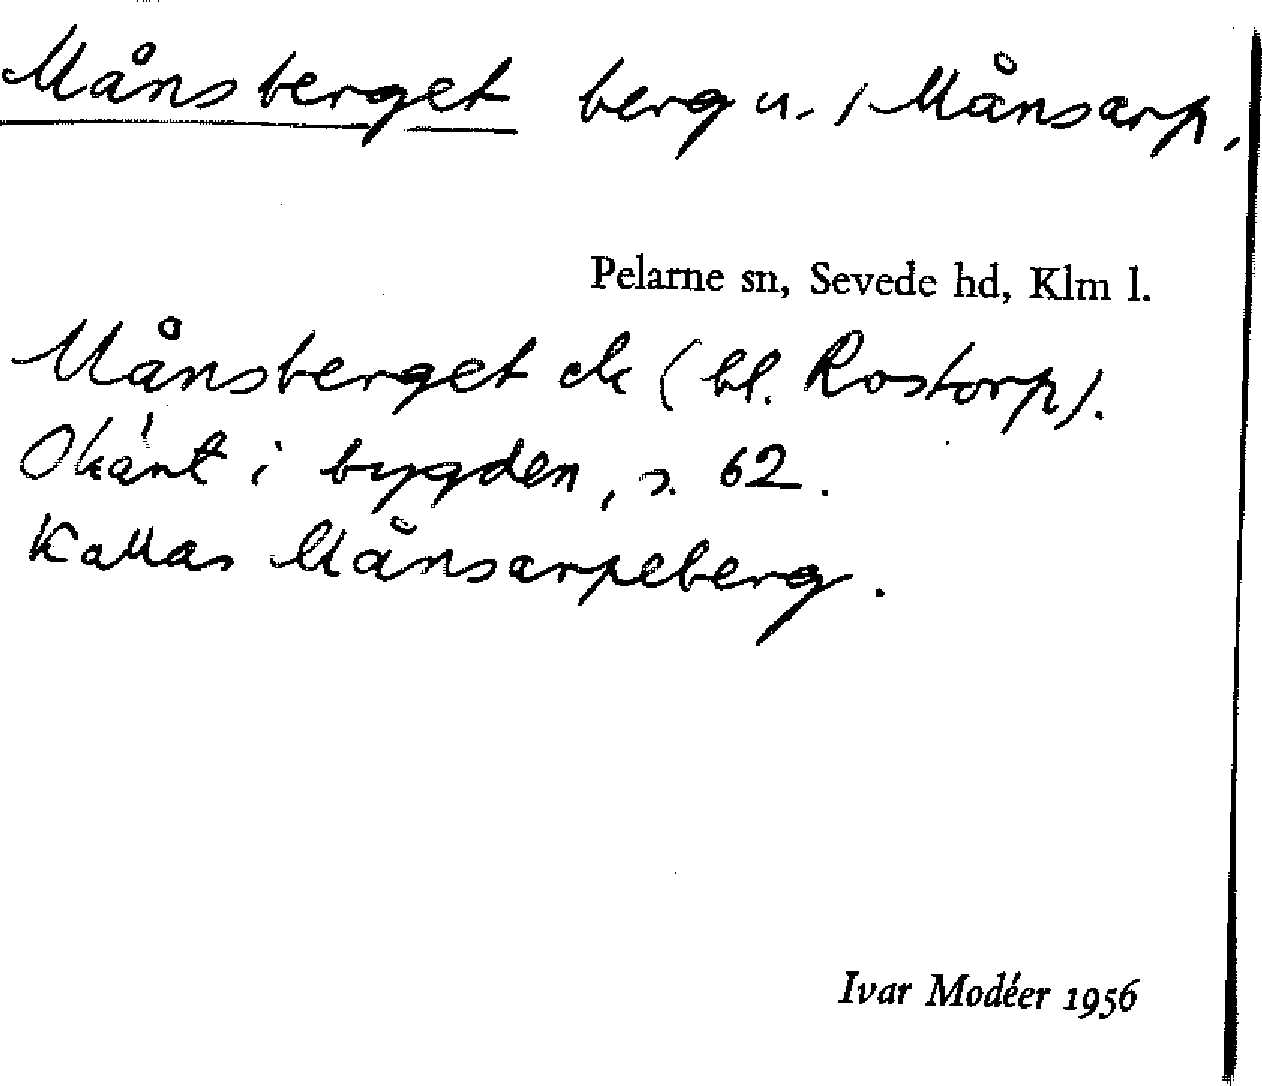 Månsberget berg u. / Månsarp,
Pelarne sn, Sevede hd, Klm l.
Månsberget ek (bl. Rostorp).
Okänt i bygden, s. 62.
Kallas Månsarpeberg.
Ivar Modéer 1956